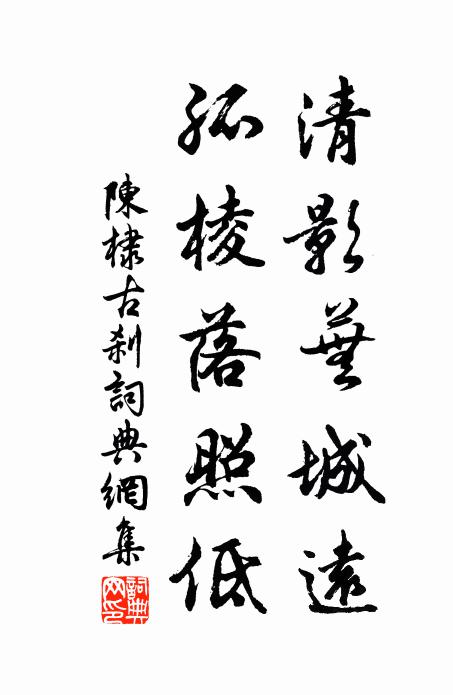 清影蕪城遠
孤棱落照低
陳棣古刹詞典網集
詞典網印